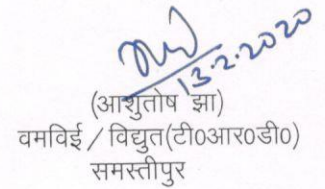 13.2.2020
(आशुतोष झा)
वमविई / विद्युत(टी०आर०डी०)
समस्तीपुर